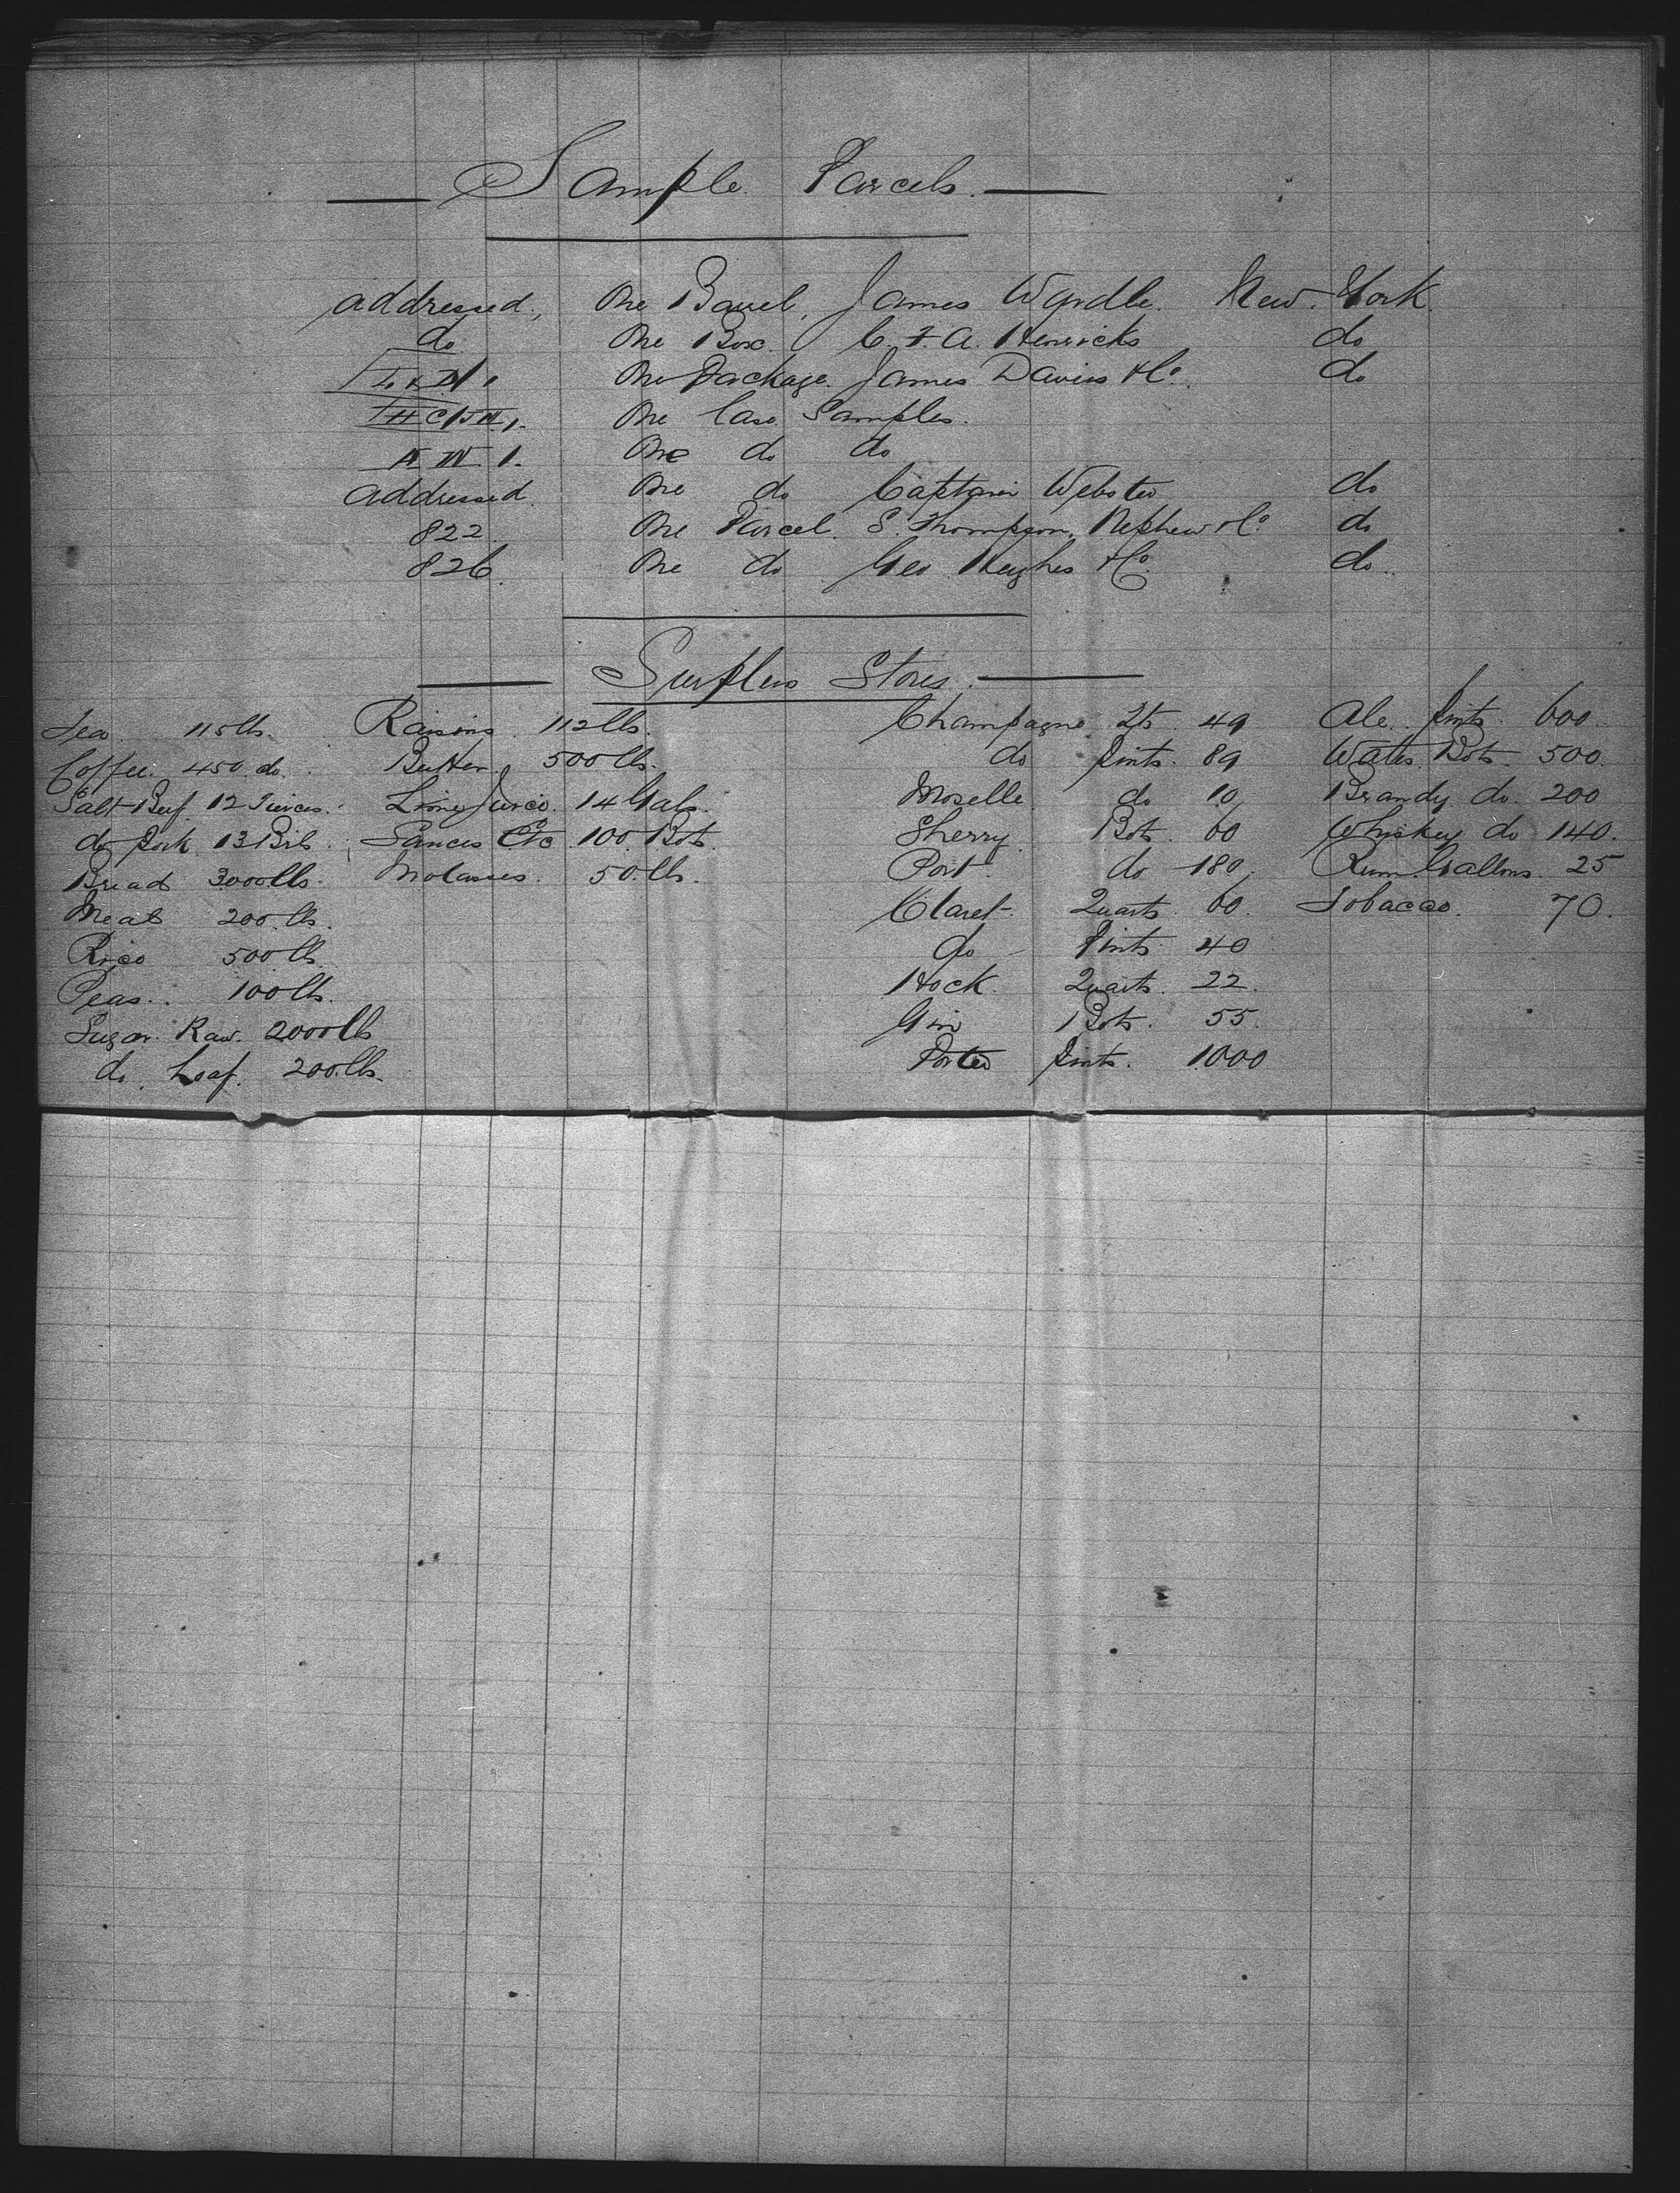 Sample Parcels.
addressed, One Barrel, James Wyrdle. New York.
do One Box. C. F. A. Henricks do
One Package. James Davies & Co. do
One Case Samples.
One do do
addressed One do Captain Webster do
822. One Parcel. S. Thompson, Nephew & Co do
826. One do Geo Hughes & Co. do
Surplus Stores.
Tea 115 lbs. Raisins. 112 lbs. Champagne Qts. 49 Ale. Pints. 600.
Coffee. 450. do. Butter 500 lbs. do Pints. 89 Water. Bots. 500.
Salt Beef. 12 Tierces. Lime Juice. 14 Gals. Moselle. do 10 Brandy do. 200
do Pork. 13 Brls. Sauces Etc. 100. Bots. Sherry. Bot. 60 Whiskey do 140.
Bread 3000 lbs. Molasses. 50. lbs. Port. do 180. Rum. Gallons. 25
Meal 200. lbs. Claret. Quarts 60. Tobacco. 70.
Rice 500 lb do Pints 40
Peas. 100 lbs. Hock. Quarts. 22.
Sugar Raw. 2000 lb Gin Bots. 55.
do. Loaf. 200. lbs. Porter Pints. 1000